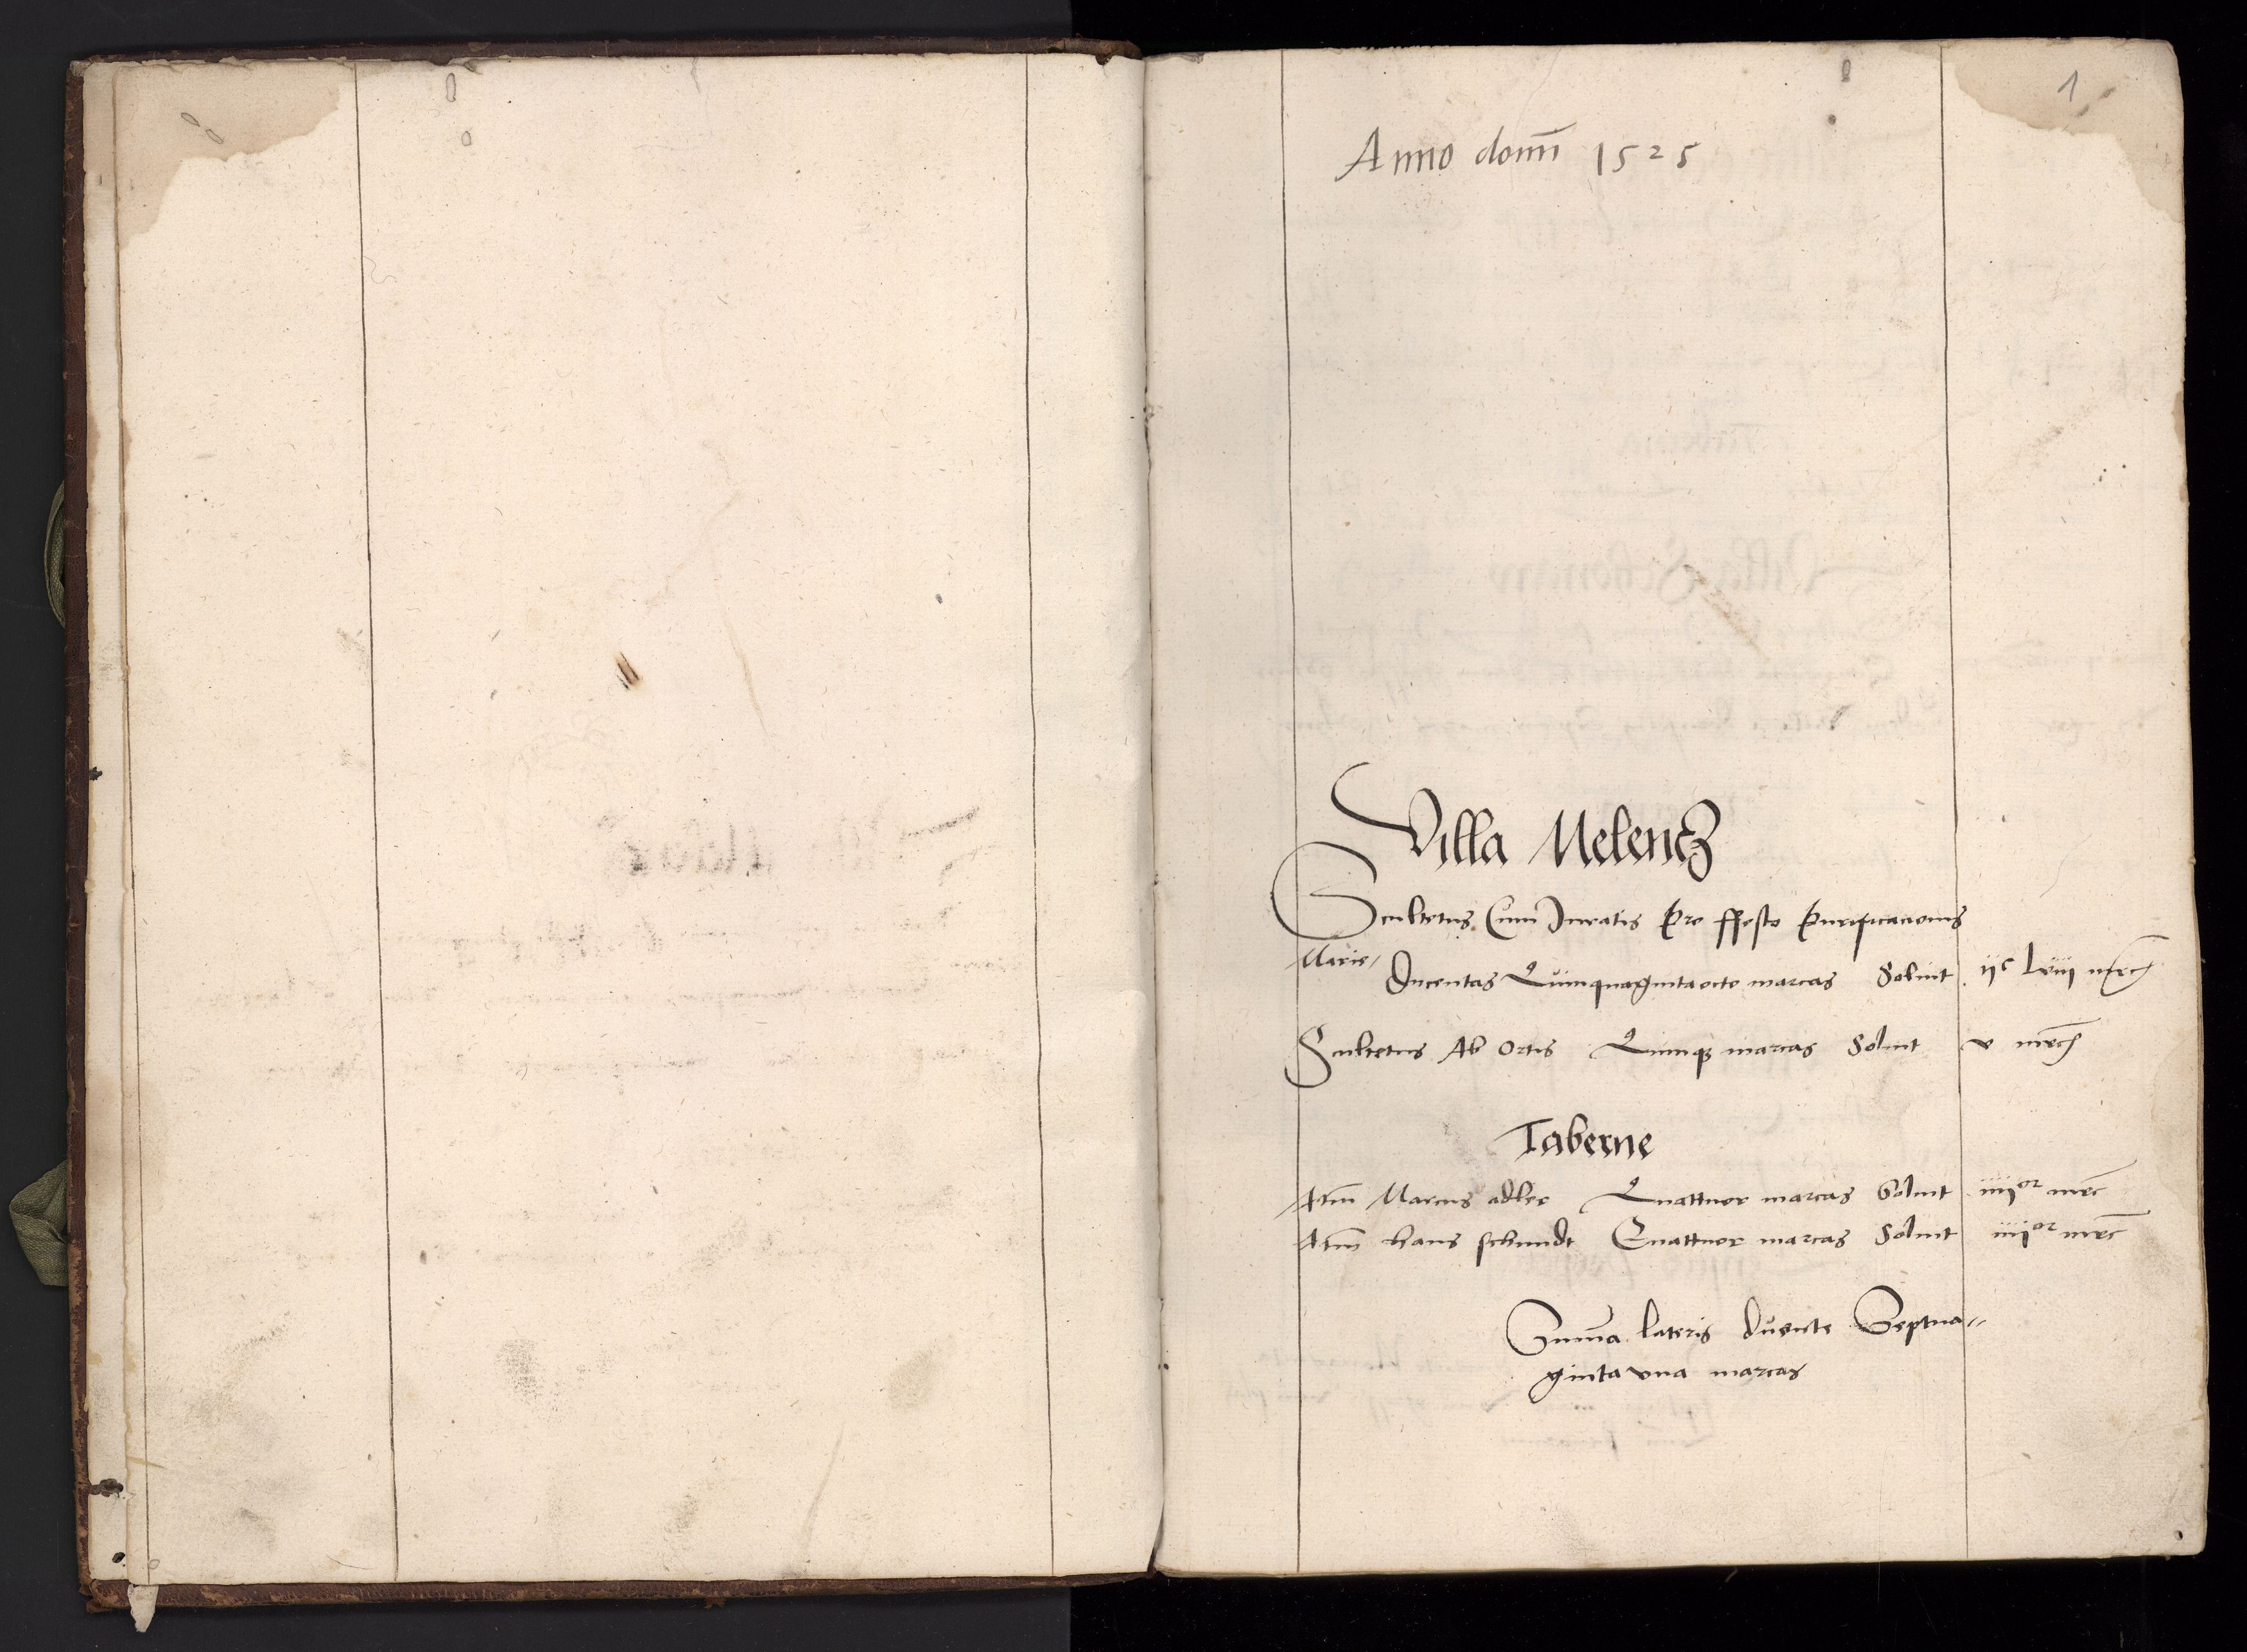 1
Anno domı̄ 1525
Villa Melencz
Scultetus Cum Iuratis pro ffesto purificacionis
Marie/
Ducentas Quinquagintaocto marcas Soluit ijᶜ lviij mrc̄
Scultetus Ab ortis Quinqꝫ marcas Soluit v mrc̄
Taberne
Itm̄ Marcus adler Quattuor marcas Soluit iiijᵒʳ mrc̄
Itm̄ hans schmidt Quattuor marcas Soluit iiijᵒʳ mrc̄
Sum̄a lateris ducente Septua=
ginta vna marcas